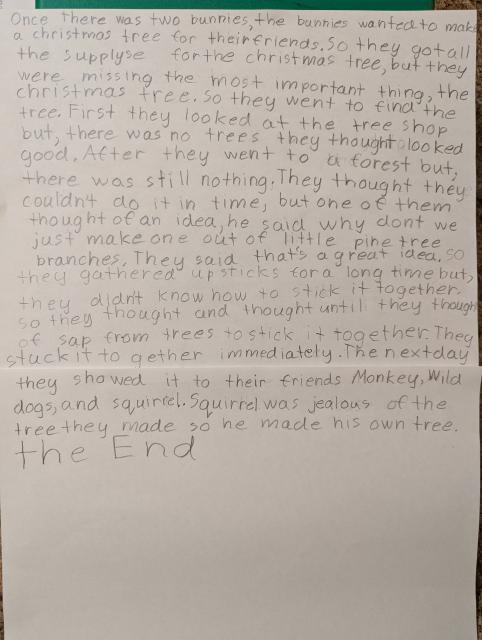 Once there was two bunnies, the bunnies wanted to make
a christmas tree for their friends. So they got all
the supplyse for the christmas tree, but they
were missing the most important thing, the
christmas tree. So they went to find the
tree. First they looked at the tree shop
but, there was no trees they thought looked
good. After they went to a forest but,
there was still nothing. They thought they
couldn't do it in time, but one of them
thought of an idea, he said why dont we
just make one out of little pine tree
branches. They said that's a great idea. so
they gathered up sticks for a long time but,
they didn't know how to stick it together.
so they thought and thought until they though
of sap from trees to stick it together. They
stuck it to gether immediately. The next day
they showed it to their friends Monkey, Wild
dogs, and squirrel. Squirrel was jealous of the
tree they made so he made his own tree.
the End